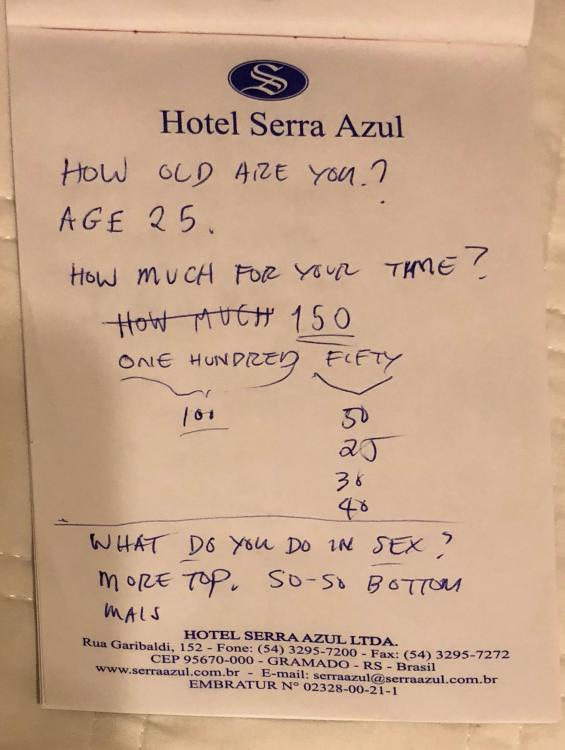 S
Hotel Serra Azul
HOW OLD ARE YOU.?
AGE 25.
HOW MUCH FOR YOUR TIME?
HOW MUCH 150
ONE HUNDRED FIFTY
100 50
25
30
40
WHAT DO YOU DO IN SEX?
MORE TOP. SO-SO BOTTOM
MAIS
HOTEL SERRA AZUL LTDA.
Rua Garibaldi, 152 - Fone: (54) 3295-7200 - Fax: (54) 3295-7272
CEP 95670-000 - GRAMADO - RS - Brasil
www.serraazul.com.br - E-mail: serraazul@serraazul.com.br
EMBRATUR N° 02328-00-21-1